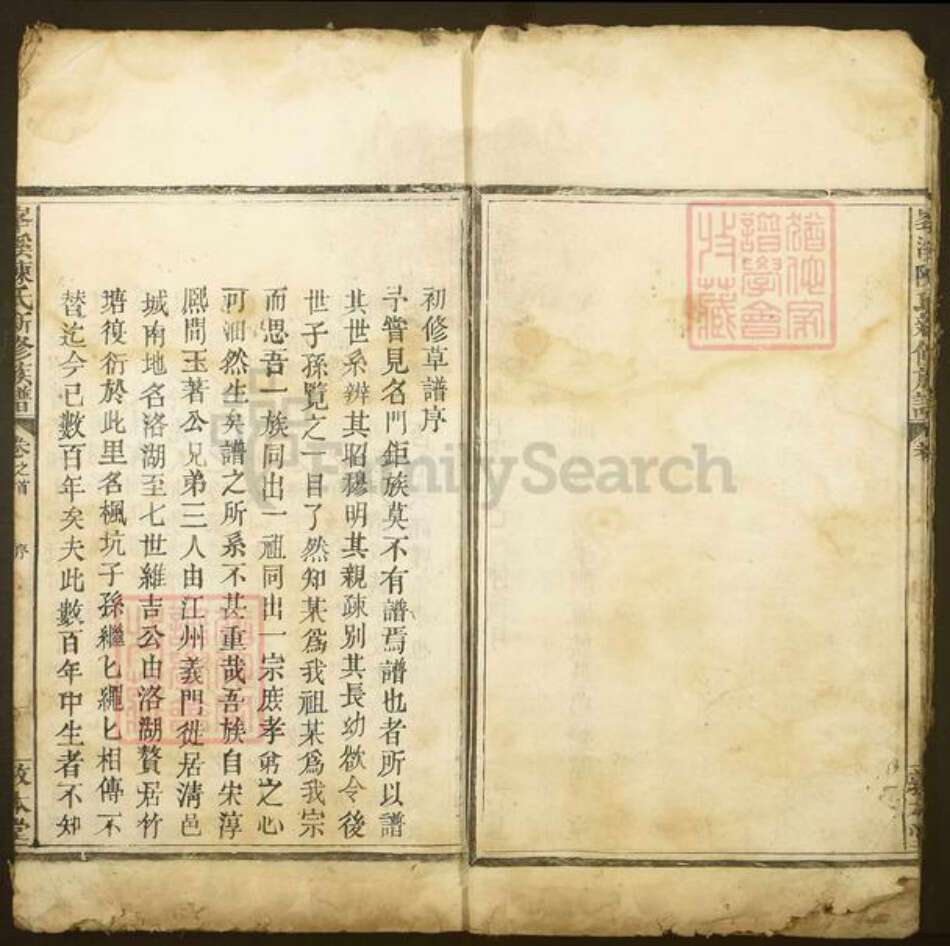 初修草譜序
予嘗見名門鉅族莫不有譜焉譜也者所以譜
其世系辨其昭穆明其親疎別其長幼欲令後
世子孫覽之一目了然知某爲我祖某爲我宗
而思吾一族同出一祖同出一宗庶孝弟之心
可油然生矣譜之所系不甚重哉吾族自宋淳
熈間玉著公兄弟三人由江州義門徙居淸邑
城南地名洛湖至七世維吉公由洛湖贅居竹
塘復衍於此里名楓坑子孫繼匕繩匕相傳不
替迄今已數百年矣夫此數百年中生者不知
溪陳氏新修族譜 卷之首 序 敦本堂
譜學會 收藏
FamilySearch